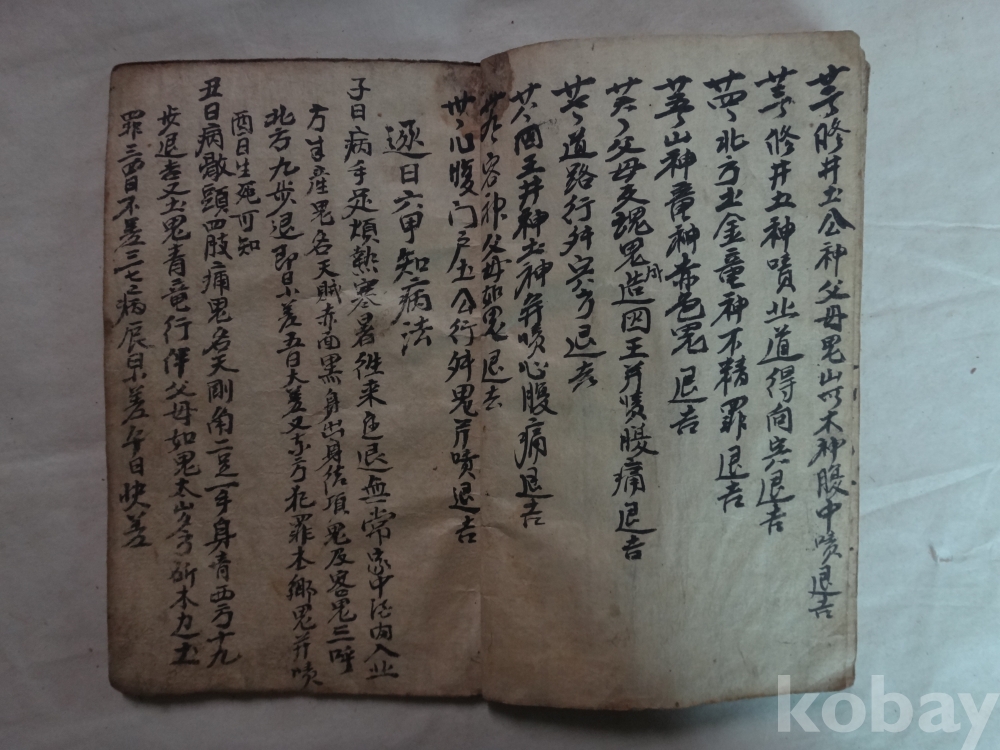 修井土公神父母鬼山所木神腹中嘖退吉
修井土神嘖北道得向哭退吉
廿四、北方土金竜神不精罪退吉
廿五、山神竜神赤色鬼退吉
廿六、父母又鬼造囚王并嘖腹痛退吉
道路行舛哭方退去
廿八、囚王井神土神并嘖心腹痛退吉
客神父母如鬼退去
卅、心腹门户土公行舛鬼并嘖退吉
逐日六甲知病法
子日病手足煩熱寒暑徃来進退無常家中内入北
方生産鬼名天賊赤面黑身出身结頂鬼及客鬼三呼
北方九步退即日小差五日大差又东方犯罪本鄉鬼并嘖
酉日生死可知
丑日病敵頭四肢痛鬼名天剛角二足一手身青西方十九
步退吉又土鬼青竜行伴父母如鬼太山方斫木力土
罪三四日不差三七之病辰日小差午日快差
kobay